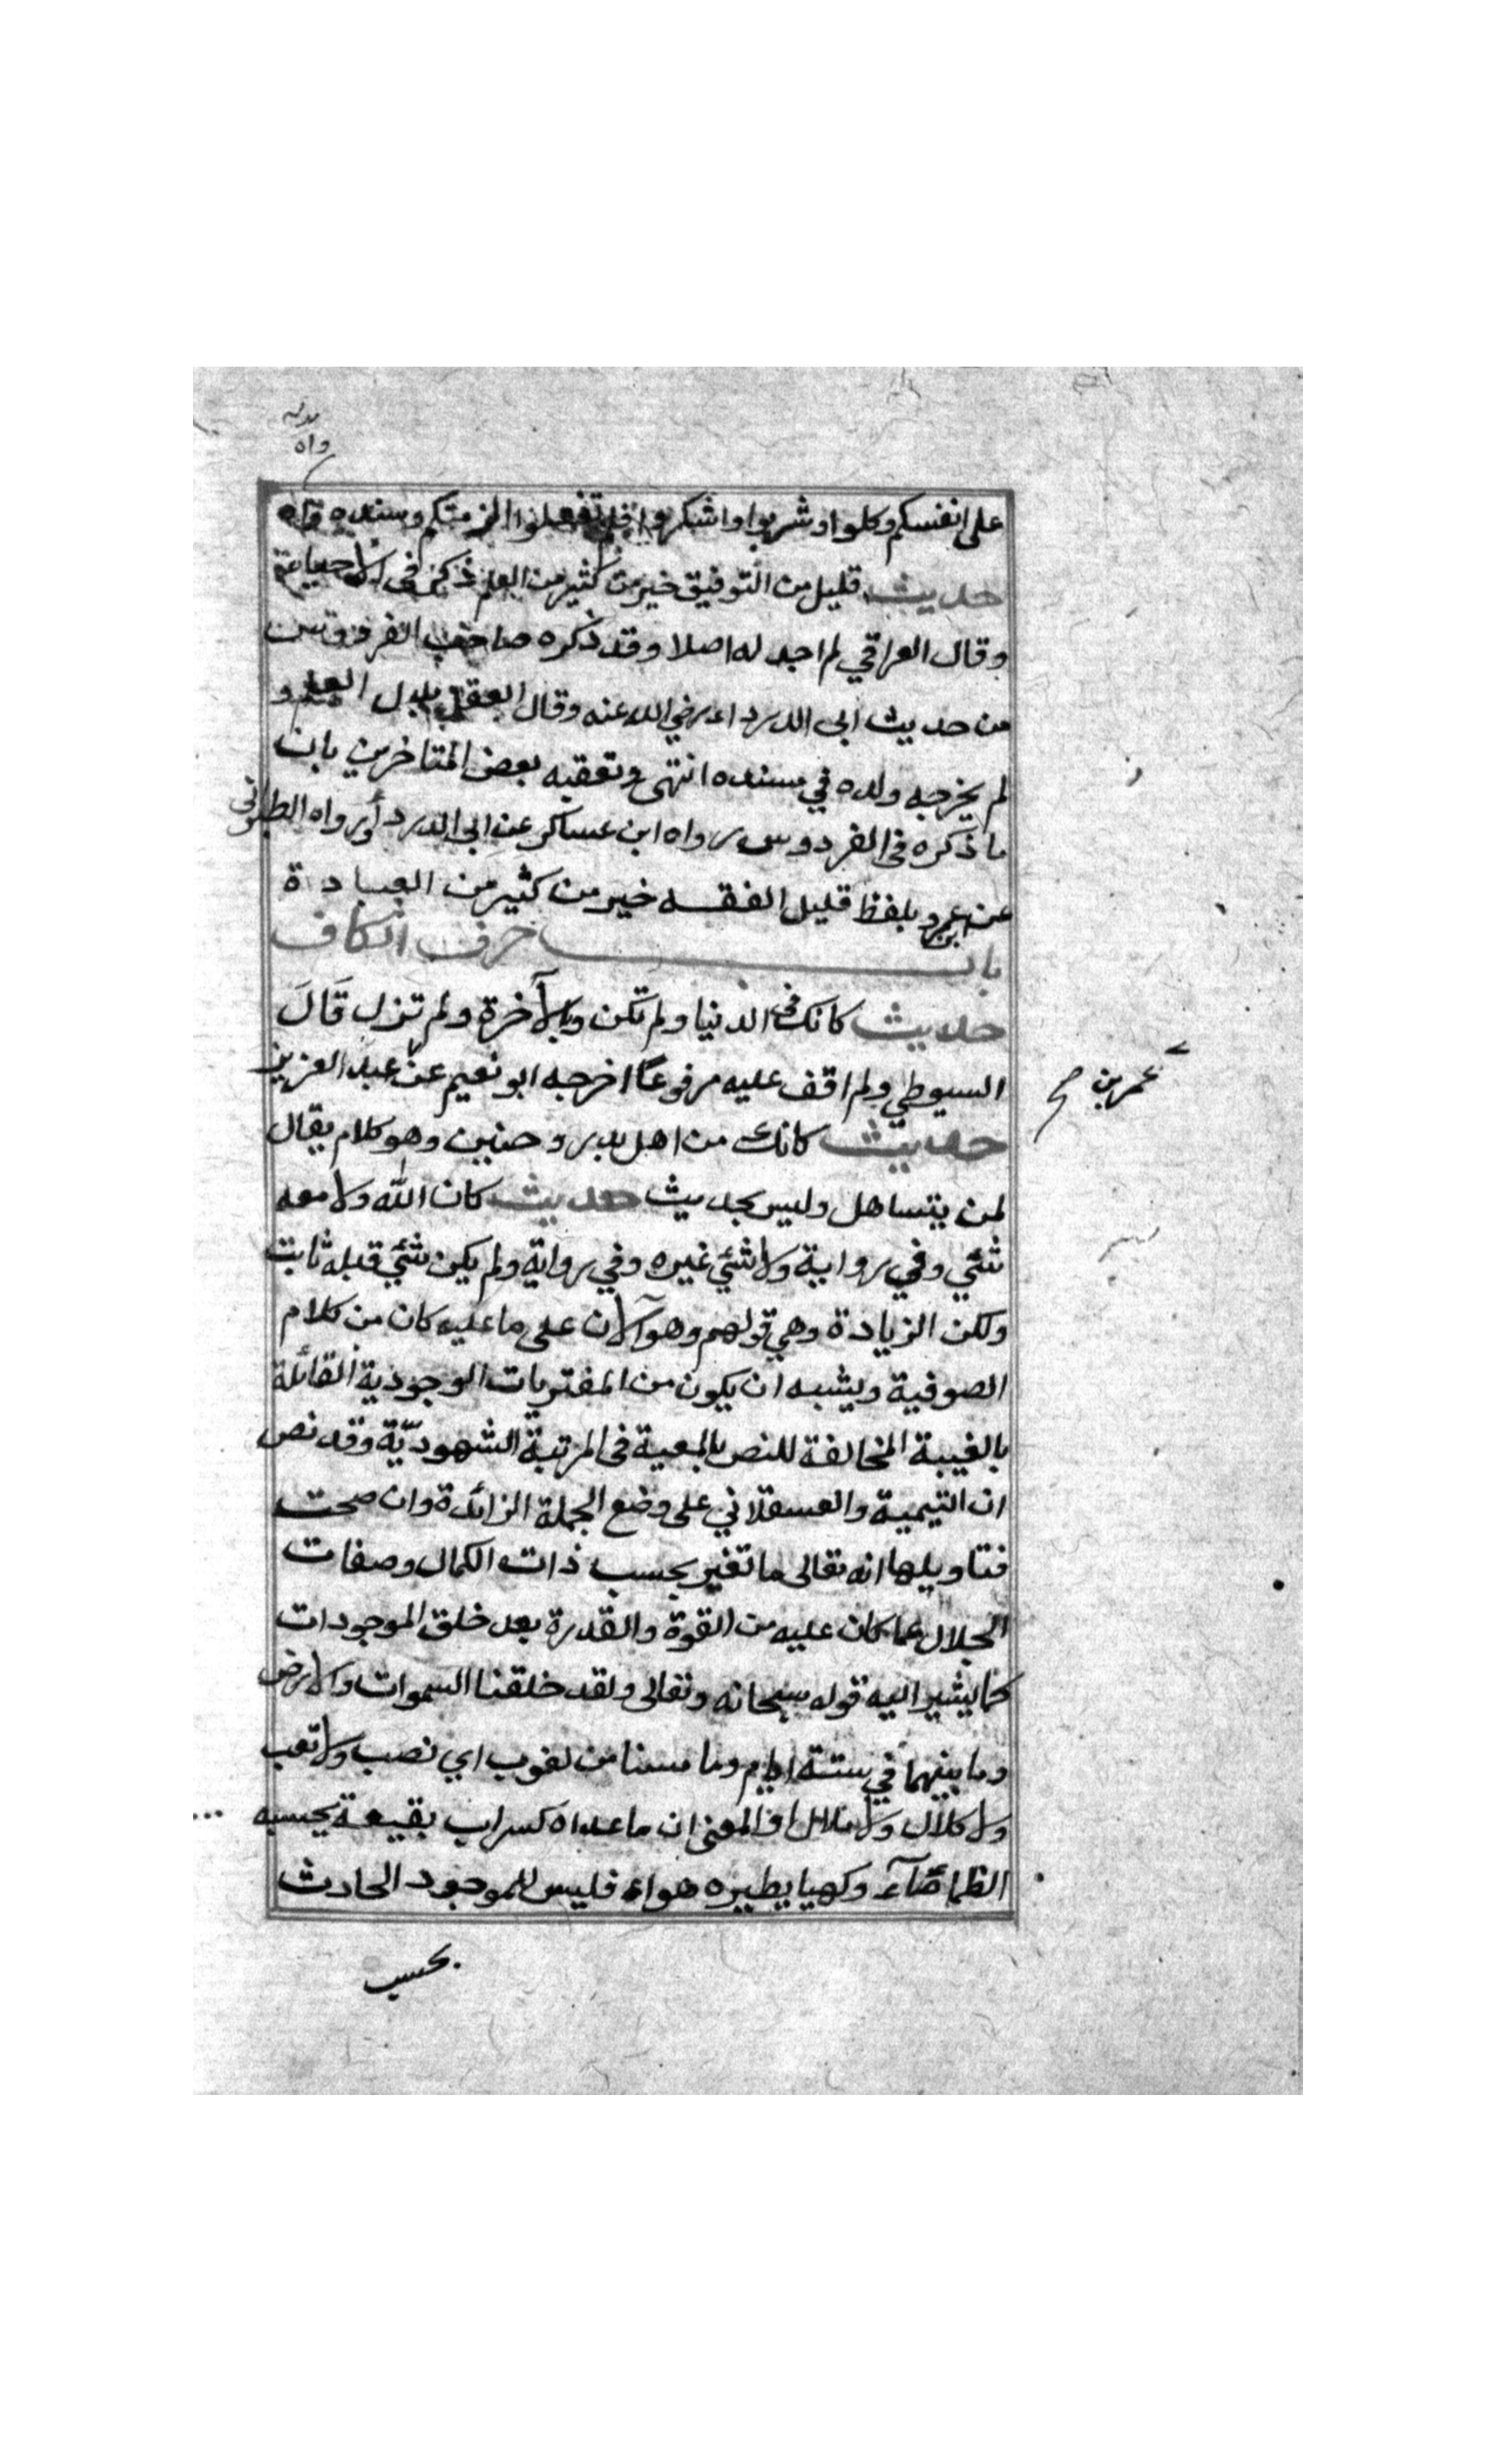 واه
على انفسكم وكلوا وشربوا واشكروا فلن تفعلوا الزمتكم وسنده واه
حديث قليل من التوفيق خير من كثير من العلم ذكره في الاحياء
وقال العراقي لم اجد له اصلا وقد ذكره صاحب الفردوس
من حديث ابى الدرداء رضي الله عنه وقال العقل بدل العلم و
لم يخرجه ولده في مسنده انتهى وتعقبه بعض المتاخرين بان
ما ذكره فى الفردوس رواه ابن عساكر عن ابى الدرداء ورواه الطبرانى
عن ابن عمرو بلفظ قليل الفقه خير من كثير من العبادة
باب حرف الكاف
حديث كانك فى الدنيا ولم تكن وبالآخرة ولم تزل قال
السيوطي ولم اقف عليه مرفوعًا اخرجه ابو نعيم عن عبد العزيز
عمر بن صح
حديث كانك من اهل بدر وحنين وهو كلام يقال
لمن يتساهل وليس بحديث حديث كان الله ولا معه
شئي وفي رواية ولا شئي غيره وفي رواية ولم يكن شئي قبله ثابت
ولكن الزيادة وهي قولهم وهو الآن على ما عليه كان من كلام
الصوفية ويشبه ان يكون من المفتريات الوجودية القائلة
بالغيبة المخالفة للنص بالمعية فى المرتبة الشهوديّة وقد نص
ان التيمية والعسقلاني على وضع الجملة الزائدة وان صحت
فتاويلها انه تعالى ما تغير بحسب ذات الكمال وصفات
الجلال عما كان عليه من القوة والقدرة بعد خلق الموجودات
كما يشير اليه قوله سبحانه وتعالى ولقد خلقنا السموات والارض
وما بينهما في ستة ايام وما مسنا من لغوب اي نصب ولا تعب
ولا كلال ولا ملال او المعنى ان ما عداه كسراب بقيعة يحسبه
الظمآن مآء وكهبا يطيره هواء فليس للموجود الحادث
بحسب